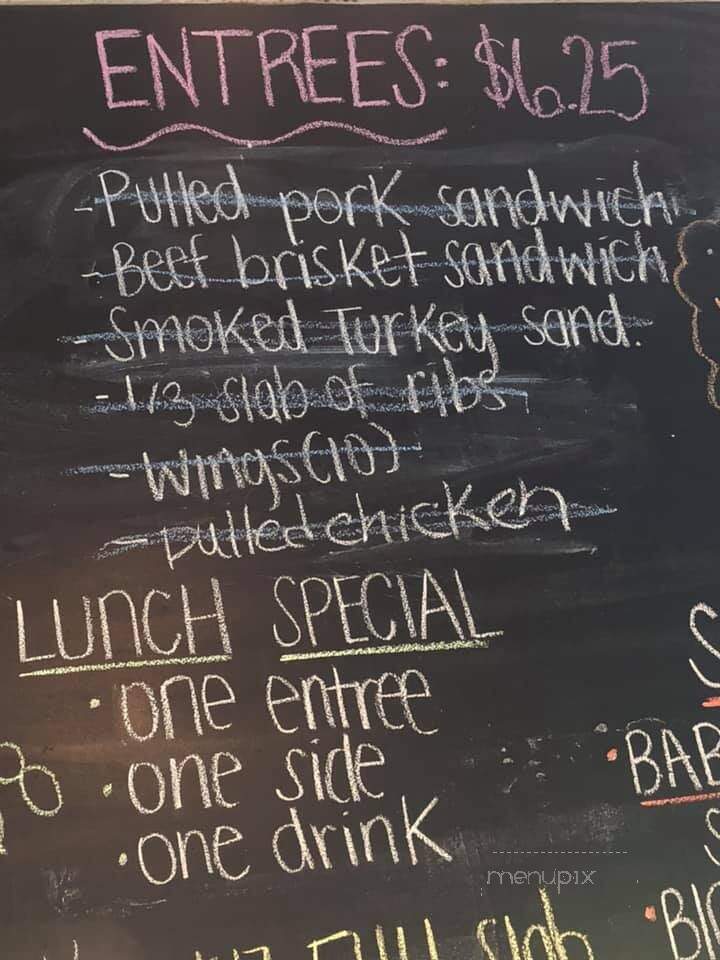 ENTREES: $6.25
- Pulled pork sandwich
- Beef brisket sandwich
- Smoked Turkey sand.
- 1/3 slab of ribs
- wings (10)
- pulled chicken
LUNCH SPECIAL
• one entree
• one side
• one drink
• BAB
menupix
slab